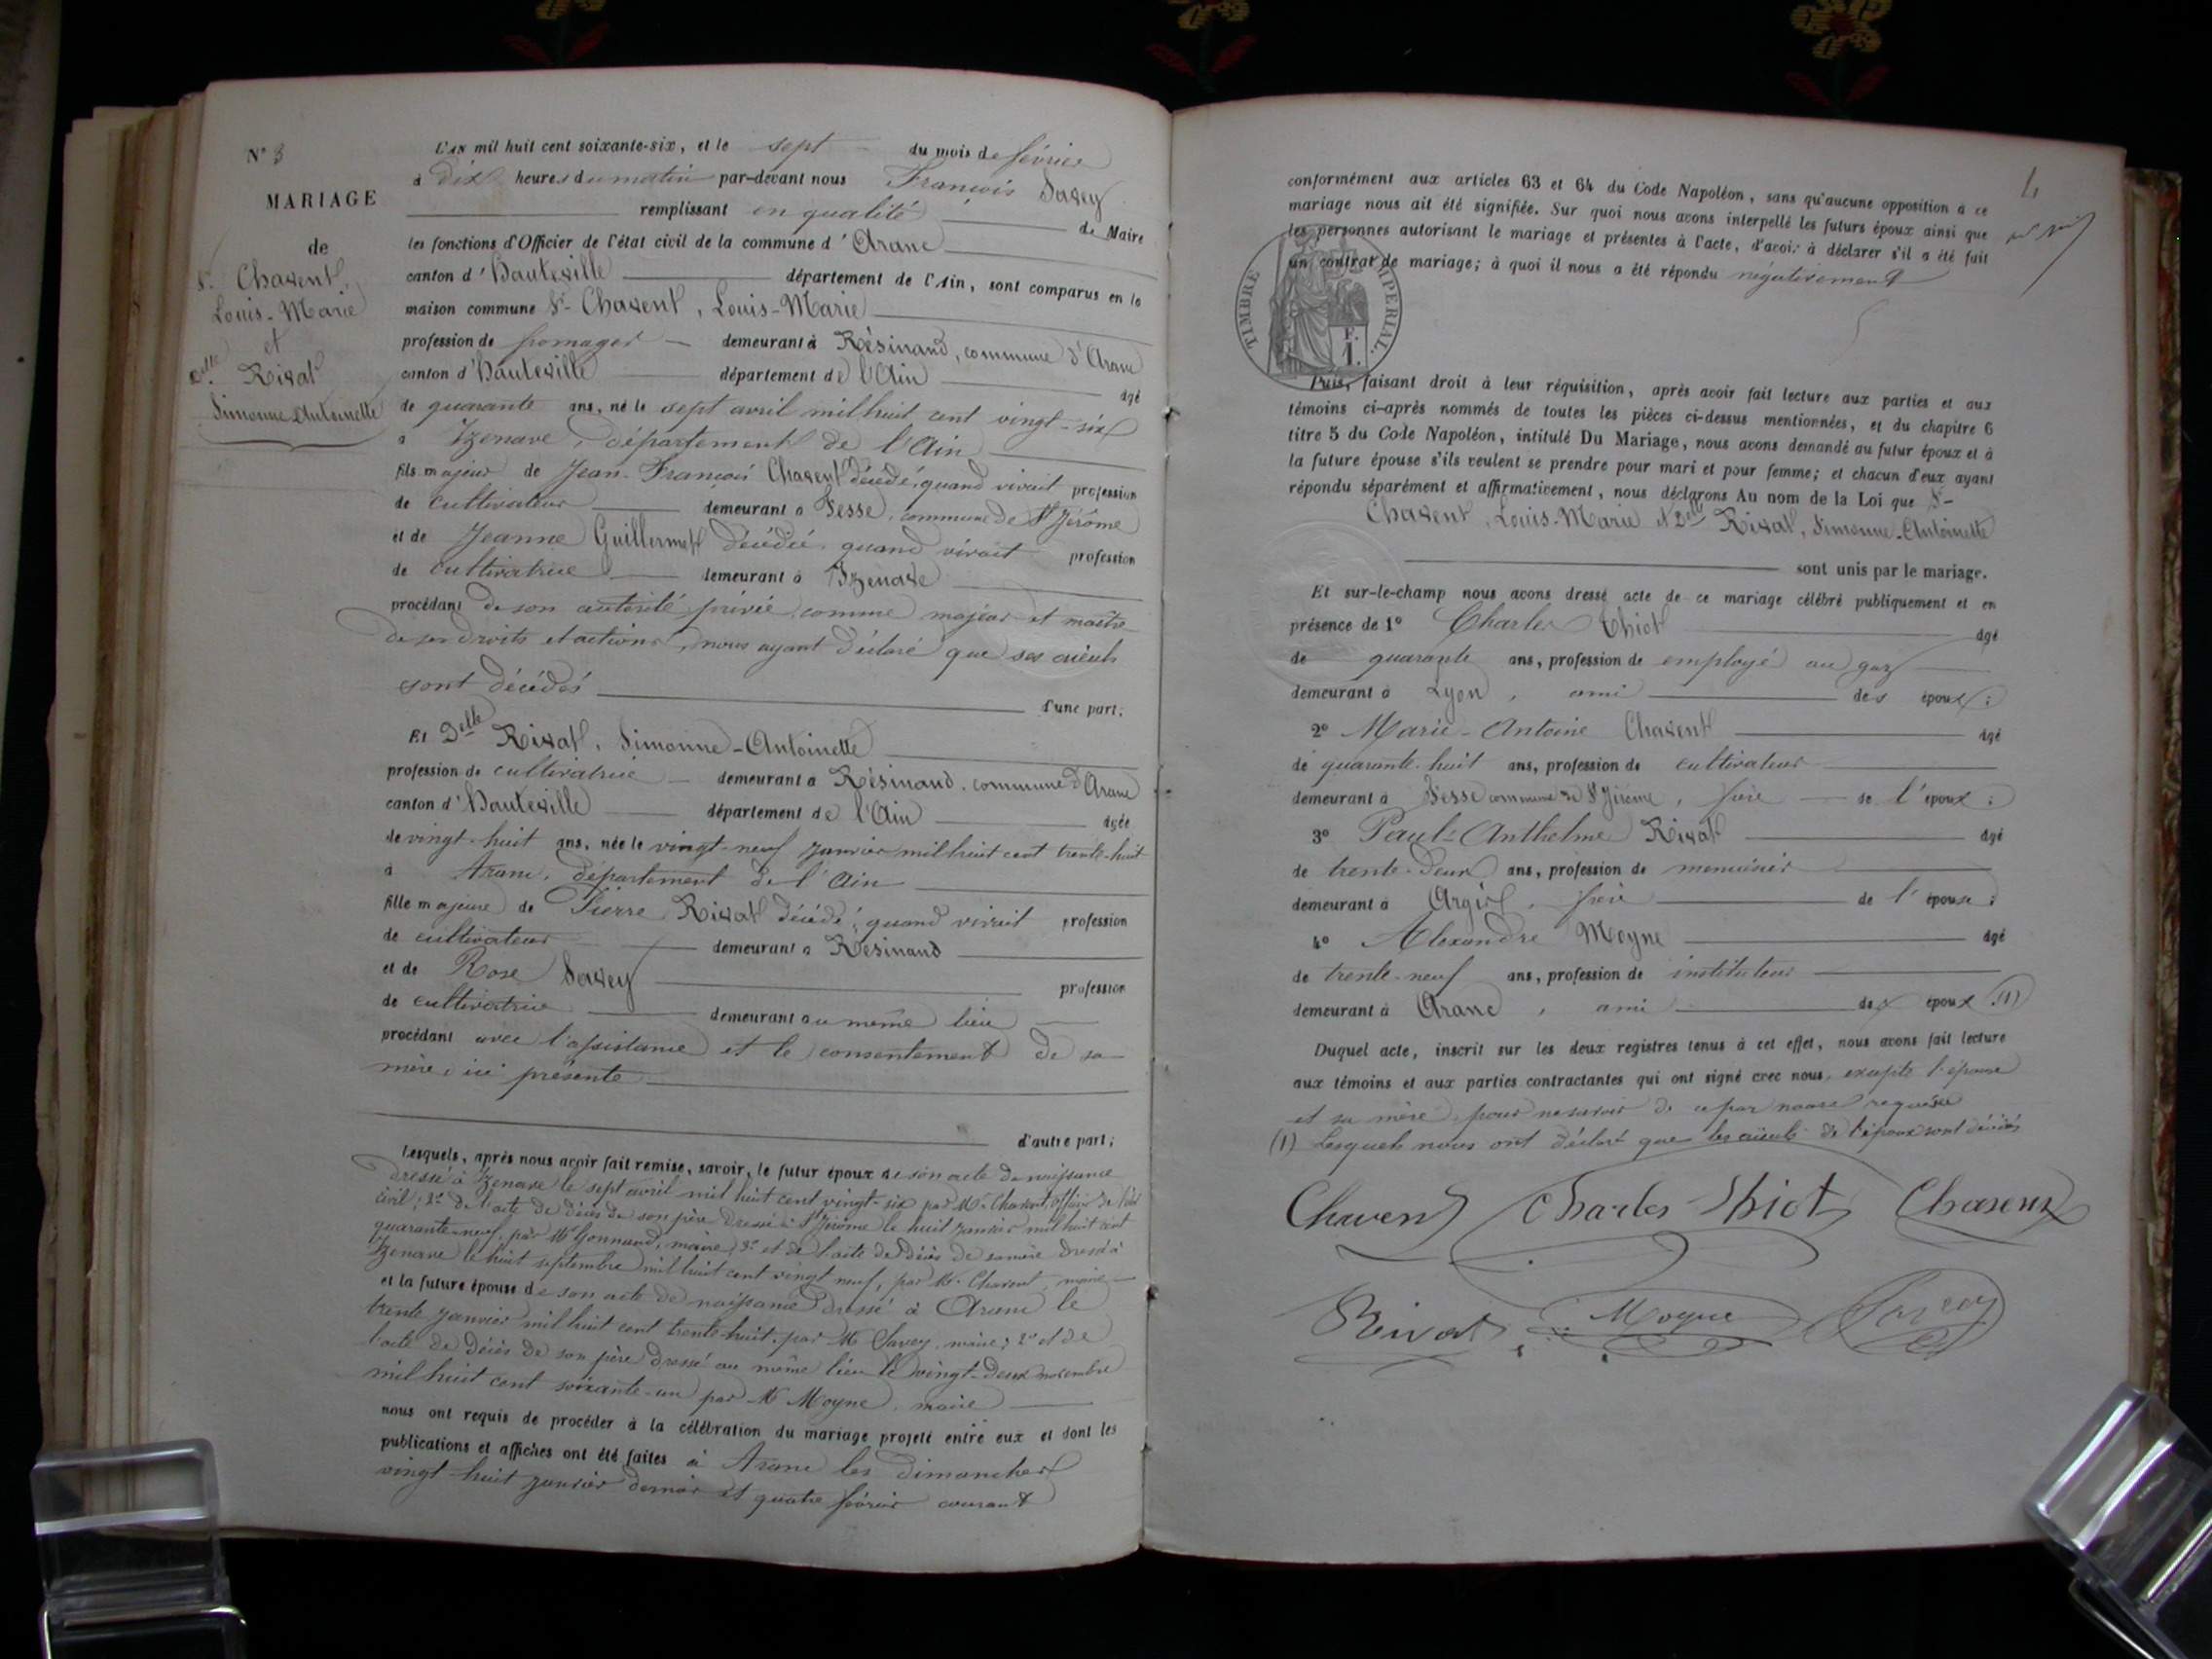 N° 3
MARIAGE
de
Sr Chavent,
Louis-Marie
et
Delle Rivat
Simonne Antoinette
L'AN mil huit cent soixante-six, et le sept du mois de février
à dix heures du matin par-devant nous François Savey
remplissant en qualité de Maire
les fonctions d'Officier de l'état civil de la commune d'Aranc
canton d'Hauteville département de l'Ain, sont comparus en la
maison commune Sr Chavent, Louis-Marie
profession de fromager demeurant à Résinand, commune d'Aranc
canton d'Hauteville département de l'Ain âgé
de quarante ans, né le sept avril mil huit cent vingt-six
à Izenave, département de l'Ain
fils majeur de Jean-François Chavent décédé, quand vivait profession
de cultivateur demeurant à Fesse, commune de St Jérôme
et de Jeanne Guillermet décédée, quand vivait profession
de cultivatrice demeurant à Izenave
procédant de son autorité privée, comme majeur et maître
de ses droits et actions, nous ayant déclaré que ses aïeuls
sont décédés d'une part;
Et Delle Rivat, Simonne-Antoinette
profession de cultivatrice demeurant à Résinand, commune d'Aranc
canton d'Hauteville département de l'Ain âgée
de vingt-huit ans, née le vingt-neuf janvier mil huit cent trente-huit
à Aranc, département de l'Ain
fille majeure de Pierre Rivat décédé, quand vivait profession
de cultivateur demeurant à Résinand
et de Rose Savey profession
de cultivatrice demeurant au même lieu
procédant avec l'assistance et le consentement de sa
mère, ici présente
d'autre part;
Lesquels, après nous avoir fait remise, savoir, le futur époux de son acte de naissance
dressé à Izenave le sept avril mil huit cent vingt-six par Mr Chavent, officier de l'état
civil; 2° de l'acte de décès de son père dressé à St Jérôme le huit janvier mil huit cent
quarante-neuf, par Mr Gonnand, maire; 3° et de l'acte de décès de sa mère dressé à
Izenave le huit septembre mil huit cent vingt neuf, par Mr Chavent, maire
et la future épouse de son acte de naissance dressé à Aranc le
trente janvier mil huit cent trente-huit, par Mr Savey, maire; 2° et de
l'acte de décès de son père dressé au même lieu le vingt-deux novembre
mil huit cent soixante-un par Mr Moyne, maire
nous ont requis de procéder à la célébration du mariage projeté entre eux et dont les
publications et affiches ont été faites à Aranc les dimanches
vingt-huit janvier dernier et quatre février courant
4
conformément aux articles 63 et 64 du Code Napoléon, sans qu'aucune opposition à ce
mariage nous ait été signifiée. Sur quoi nous avons interpellé les futurs époux ainsi que
les personnes autorisant le mariage et présentes à l'acte, d'avoir à déclarer s'il a été fait
un contrat de mariage; à quoi il nous a été répondu négativement
TIMBRE IMPERIAL.
F.
1.
Puis, faisant droit à leur réquisition, après avoir fait lecture aux parties et aux
témoins ci-après nommés de toutes les pièces ci-dessus mentionnées, et du chapitre 6
titre 5 du Code Napoléon, intitulé Du Mariage, nous avons demandé au futur époux et à
la future épouse s'ils veulent se prendre pour mari et pour femme; et chacun d'eux ayant
répondu séparément et affirmativement, nous déclarons Au nom de la Loi que Sr
Chavent, Louis-Marie et Delle Rivat, Simonne-Antoinette
sont unis par le mariage.
Et sur-le-champ nous avons dressé acte de ce mariage célébré publiquement et en
présence de 1° Charles Thiot âgé
de quarante ans, profession de employé au gaz
demeurant à Lyon, ami des époux;
2° Marie-Antoine Chavent âgé
de quarante-huit ans, profession de cultivateur
demeurant à Fesse commune de St Jérôme, frère de l'époux;
3° Paul-Anthelme Rivat âgé
de trente-deux ans, profession de menuisier
demeurant à Argis, frère de l'épouse;
4° Alexandre Moyne âgé
de trente-neuf ans, profession de instituteur
demeurant à Aranc, ami des époux (1)
Duquel acte, inscrit sur les deux registres tenus à cet effet, nous avons fait lecture
aux témoins et aux parties contractantes qui ont signé avec nous, excepté l'épouse
et sa mère pour ne savoir de ce par nous requises
(1) Lesquels nous ont déclaré que les aïeuls de l'époux sont décédés
Chavent Charles Thiot Chavent
Rivat Moyne Savey